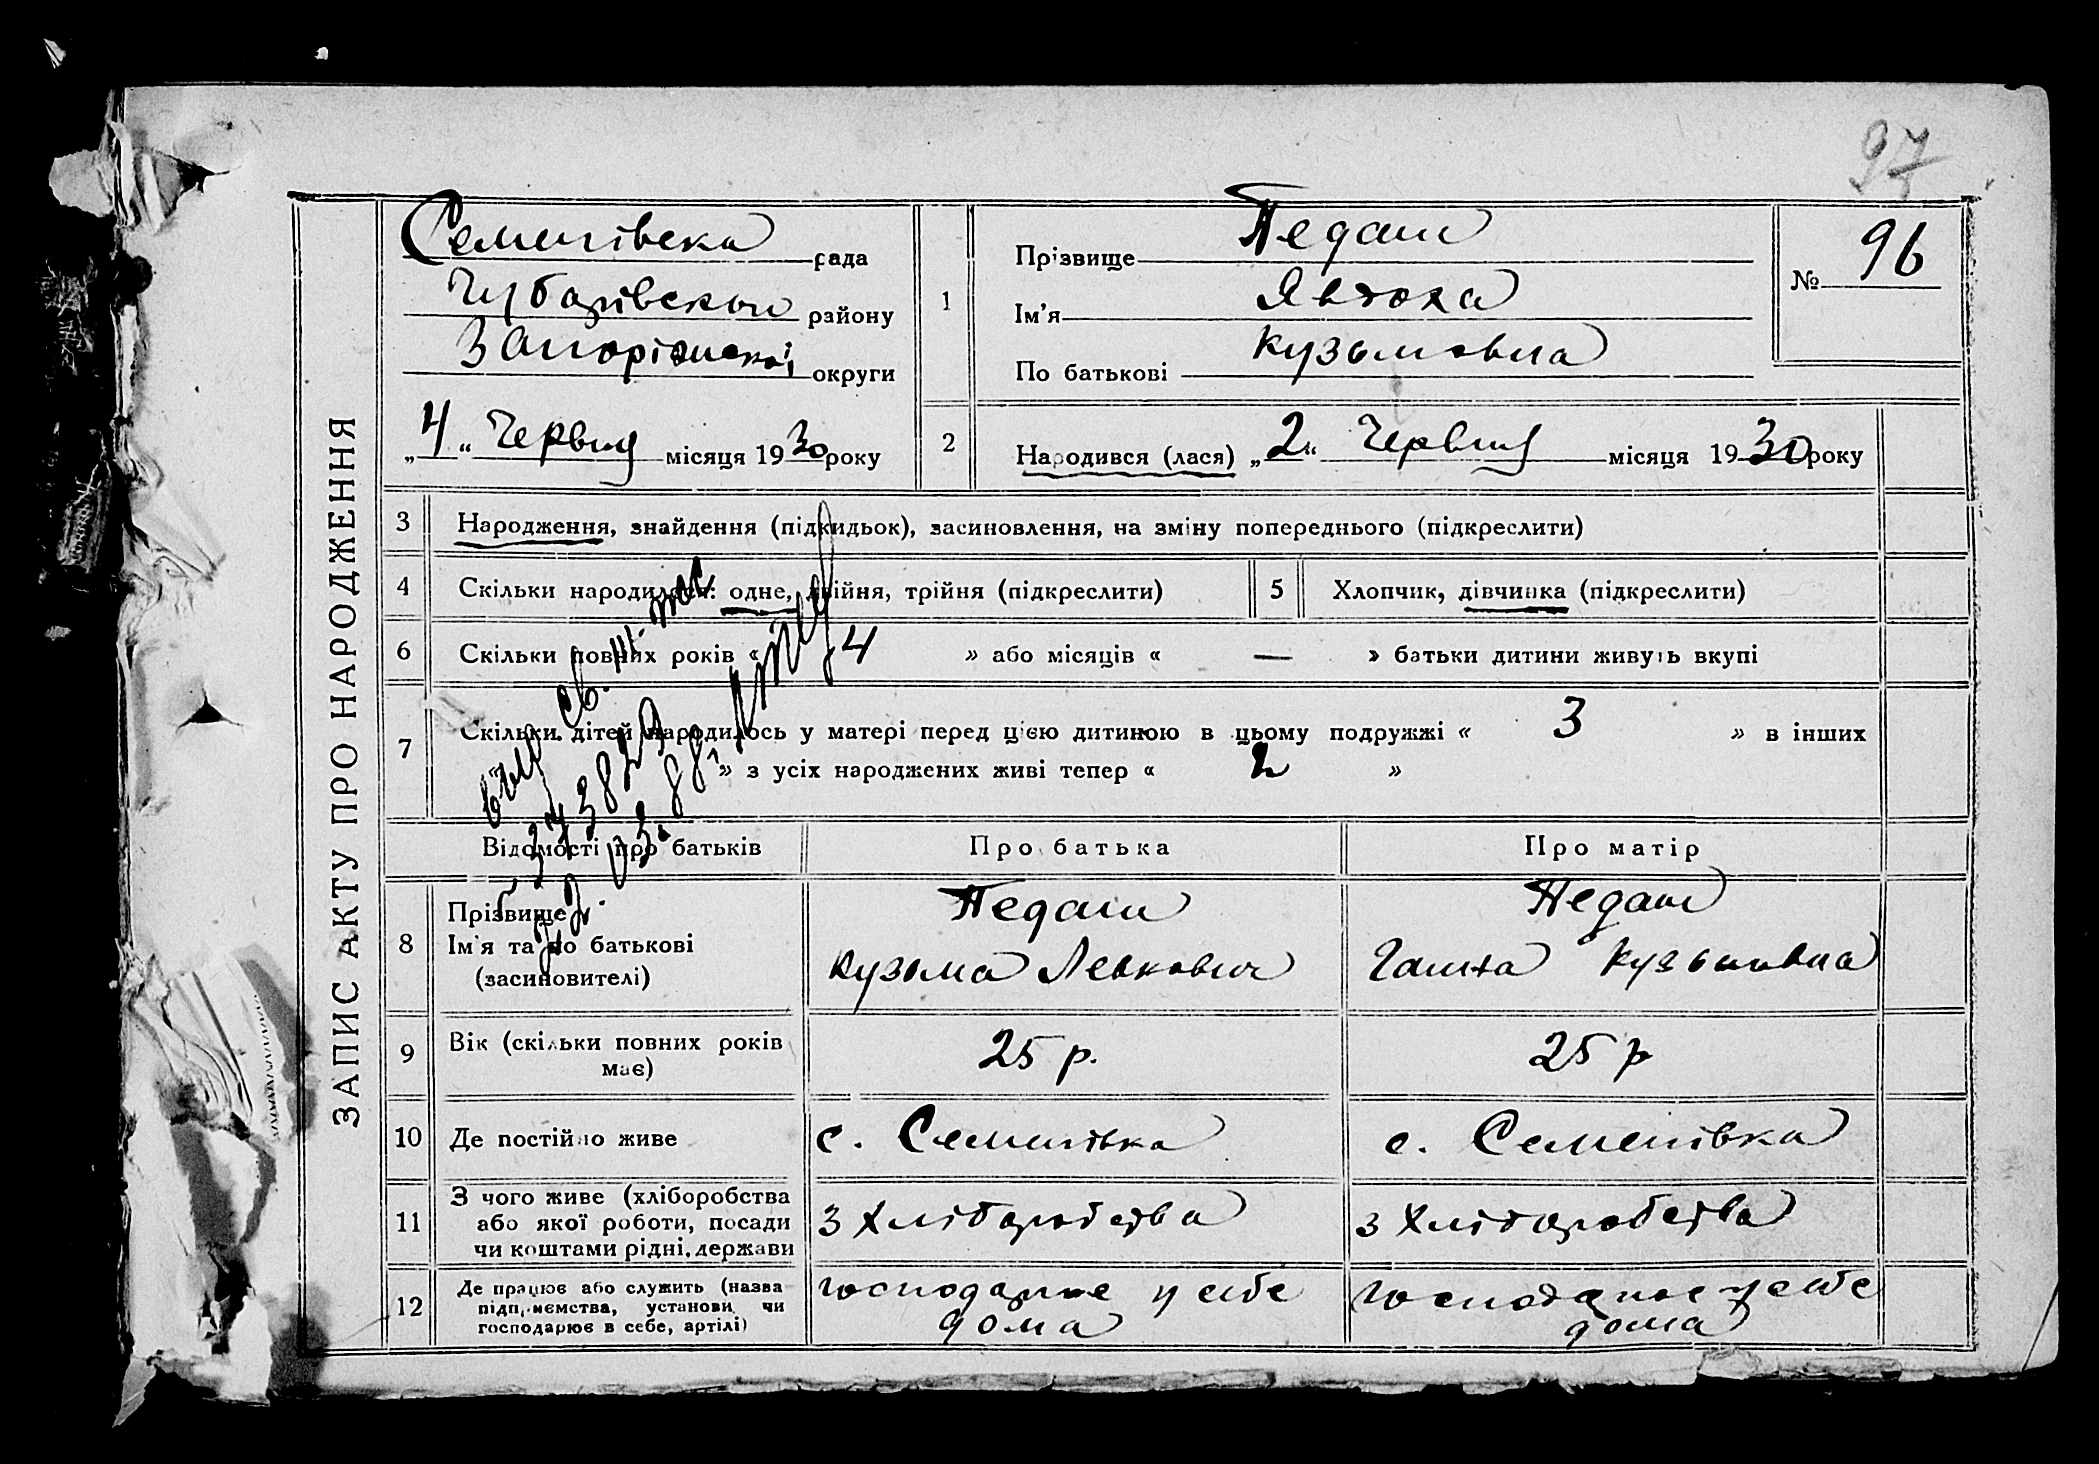 97
ЗАПИС АКТУ ПРО НАРОДЖЕННЯ
Семенівска рада
Чубарівського району
Запоріжської округи
„4“ Червня місяця 1930 року
1
Прізвище Педаш
Ім'я Явдоха
По батькові Кузьмовна
№ 96
2
Народився (лася) „2“ Червня місяця 1930 року
3 Народження, знайдення (підкидьок), засиновлення, на зміну попереднього (підкреслити)
4 Скільки народилося: одне, двійня, трійня (підкреслити)
5 Хлопчик, дівчинка (підкреслити)
6 Скільки повних років « 4 » або місяців « — » батьки дитини живуть вкупі
7 Скільки дітей народилось у матері перед цією дитиною в цьому подружжі « 3 » в інших
» з усіх народжених живі тепер « 2 »
Відомості про батьків Про батька Про матір
8 Прізвище Педаш Педаш
Ім'я та по батькові Кузьма Левкович Ганна Кузьмовна
(засиновителі)
9 Вік (скільки повних років має) 25 р. 25 р
10 Де постійно живе с. Семенівка с. Семенівка
11 З чого живе (хліборобства
або якої роботи, посади
чи коштами рідні, держави
з Хліборобства з Хліборобства
12 Де працює або служить (назва
підприємства, установи чи
господарює в себе, артілі)
господарює у себе
дома
господарює у себе
дома
03.88